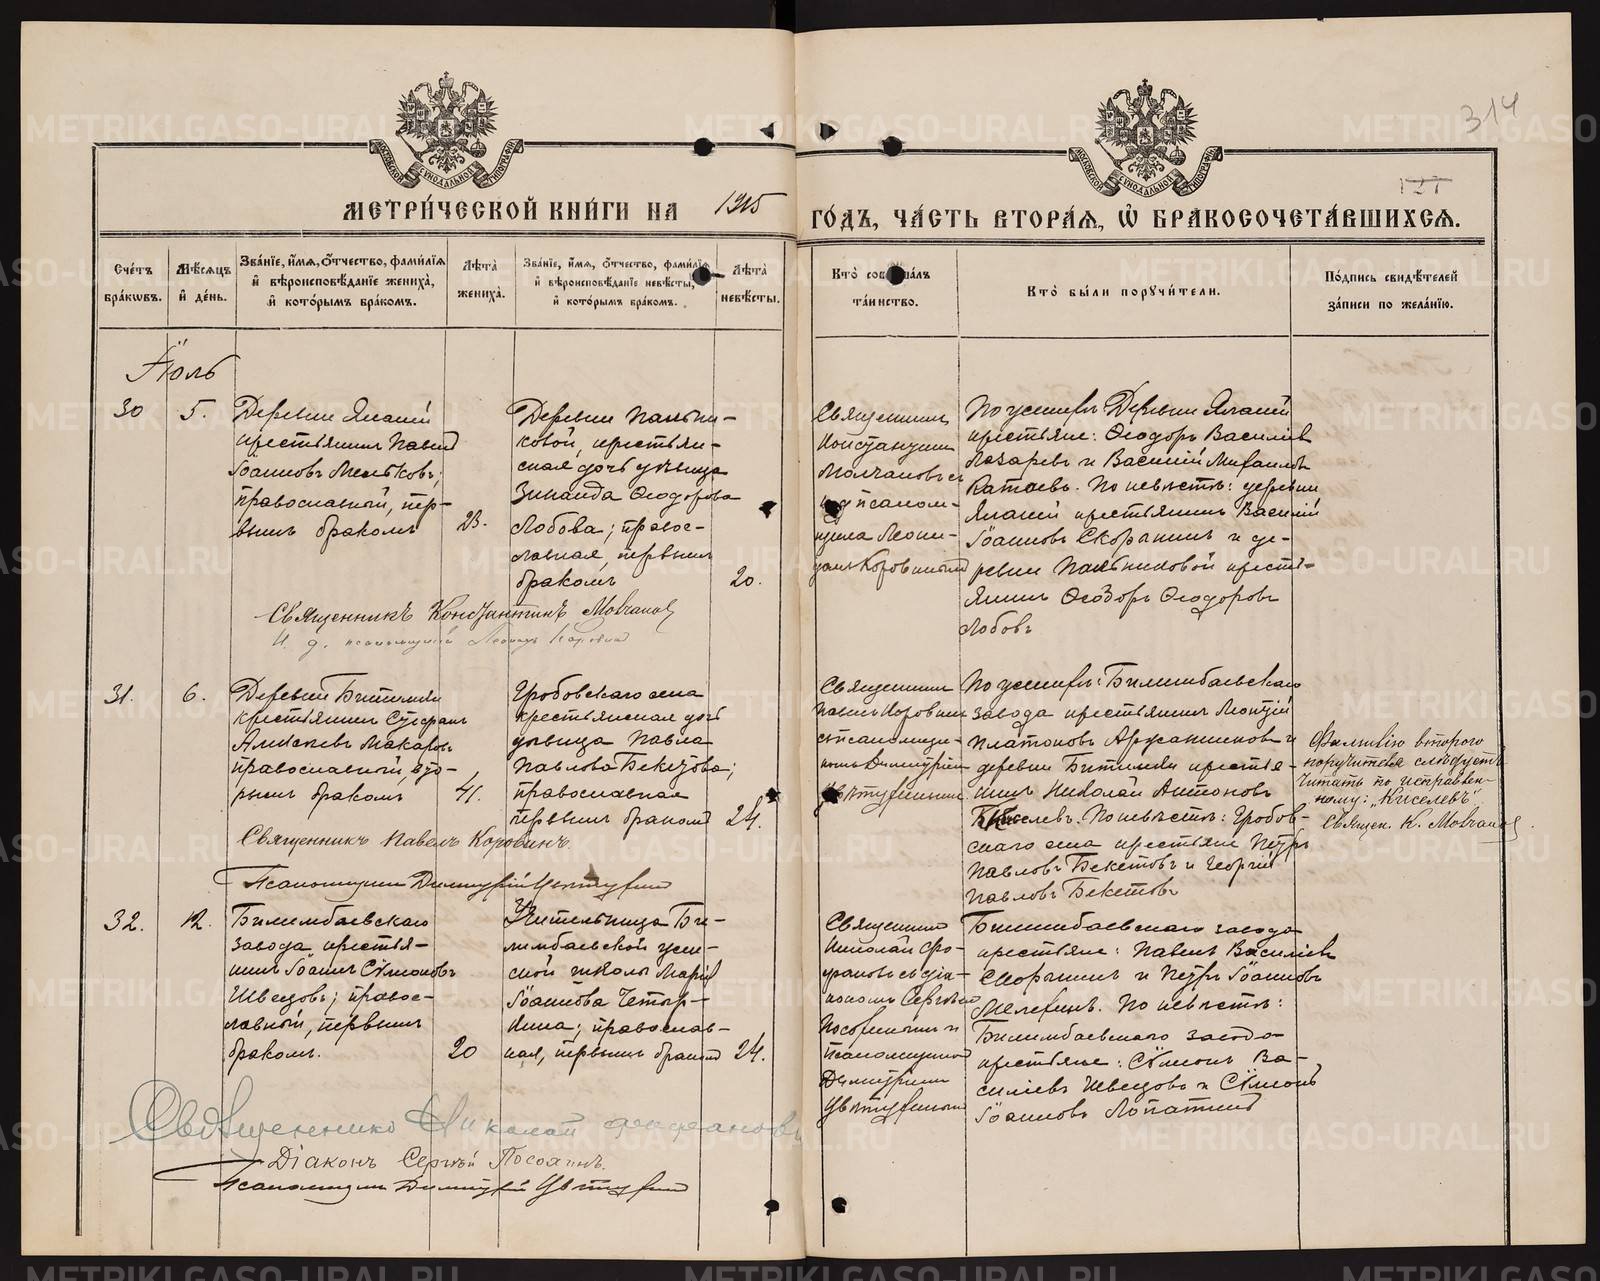 314
МОСКОВСКОЙ СѴНОДАЛЬНОЙ ТИПОГРАФІИ
МОСКОВСКОЙ СѴНОДАЛЬНОЙ ТИПОГРАФІИ
МЕТРИ́ЧЕСКОЙ КНИ́ГИ НА 1915
ГО́ДЪ, ЧА́СТЬ ВТОРА́Я, Ѡ БРАКОСОЧЕТА́ВШИХСЯ.
Сче́тъ бра́кωвъ.
Мѣ́сяцъ и҆ де́нь.
Зва́нїе, и҆́мя, ѻ҆́тчество, фами́лїя и҆ вѣроисповѣ́данїе жениха̀, и҆ кото́рымъ бра́комъ.
Лѣ́та жениха̀.
Зва́нїе, и҆́мя, ѻ҆́тчество, фами́лїя и҆ вѣроисповѣ́данїе невѣ́сты, и҆ кото́рымъ бра́комъ.
Лѣ́та невѣ́сты.
Кто̀ сов
та́инство.
Кто̀ бы́ли порꙋчи́тели.
По́дпись свидѣ́телей за́писи по жела́нїю.
Іюль
30
5.
Деревни
крестьянинъ Павелъ
Іоанновъ
православный, пер-
вымъ бракомъ
23.
Деревни
ковой, крестьян-
ская дочь дѣвица
Зинаида Ѳеодорова
Лобова; право-
славная, первымъ
бракомъ
20.
Священникъ
Константинъ
Молчановъ съ
псалом-
щика Леони-
домъ Коровинымъ
По женихѣ: Деревни
крестьяне: Ѳеодоръ Василіевъ
Лазаревъ и Василій Михаиловъ
Катаевъ. По невѣстѣ: деревни
крестьянинъ Василій
Іоанновъ Скорынинъ и де-
ревни крестья-
нинъ Ѳеодоръ Ѳеодоровъ
Лобовъ
Священникъ Константинъ Молчановъ
И. д. псаломщика Леонидъ Коровинъ
31.
6.
Деревни Битимки
крестьянинъ
Алексіевъ Макаровъ
православный, вто-
рымъ бракомъ
41.
Гробовскаго села
крестьянская дочь
дѣвица Павла
Павлова Бекетова;
православная
первымъ бракомъ
24.
Священникъ
Павелъ Коровинъ
съ псаломщи-
комъ Димитріемъ
Цвѣтухинымъ
По женихѣ: Билимбаевскаго
завода крестьянинъ Леонтій
Платоновъ и
деревни Битимки крестья-
нинъ Николай Антоновъ
Киселевъ. По невѣстѣ: Гробов-
скаго села крестьяне Петръ
Павловъ Бекетовъ и Георгій
Павловъ Бекетовъ
Фамилію второго
поручителя слѣдуетъ
читать по исправлен-
ному: „Киселевъ“
Священ. К. Молчановъ
Священникъ Павелъ Коровинъ.
Псаломщикъ Димитрій Цвѣтухинъ
32.
12.
Билимбаевскаго
завода крестья-
нинъ Іоаннъ Сѵмеоновъ
Швецовъ; право-
славный, первымъ
бракомъ.
20
Учительница Би-
лимбаевской
ской школы Марія
Іоаннова Четыр-
кина; православ-
ная, первымъ бракомъ
24.
Священникъ
Николай Фо-
фановъ съ діа-
кономъ Сергіемъ
и
псаломщикомъ
Димитріемъ
Цвѣтухинымъ
Билимбаевскаго завода
крестьяне: Павелъ Василіевъ
Скорынинъ и Петръ Іоанновъ
По невѣстѣ:
Билимбаевскаго завода
крестьяне: Сѵмеонъ Ва-
силіевъ Швецовъ и Сѵмеонъ
Іоанновъ Лопатинъ
Священникъ Николай Фофановъ
Діаконъ Сергѣй
Псаломщикъ Димитрій Цвѣтухинъ
METRIKI.GASO-URAL.RU